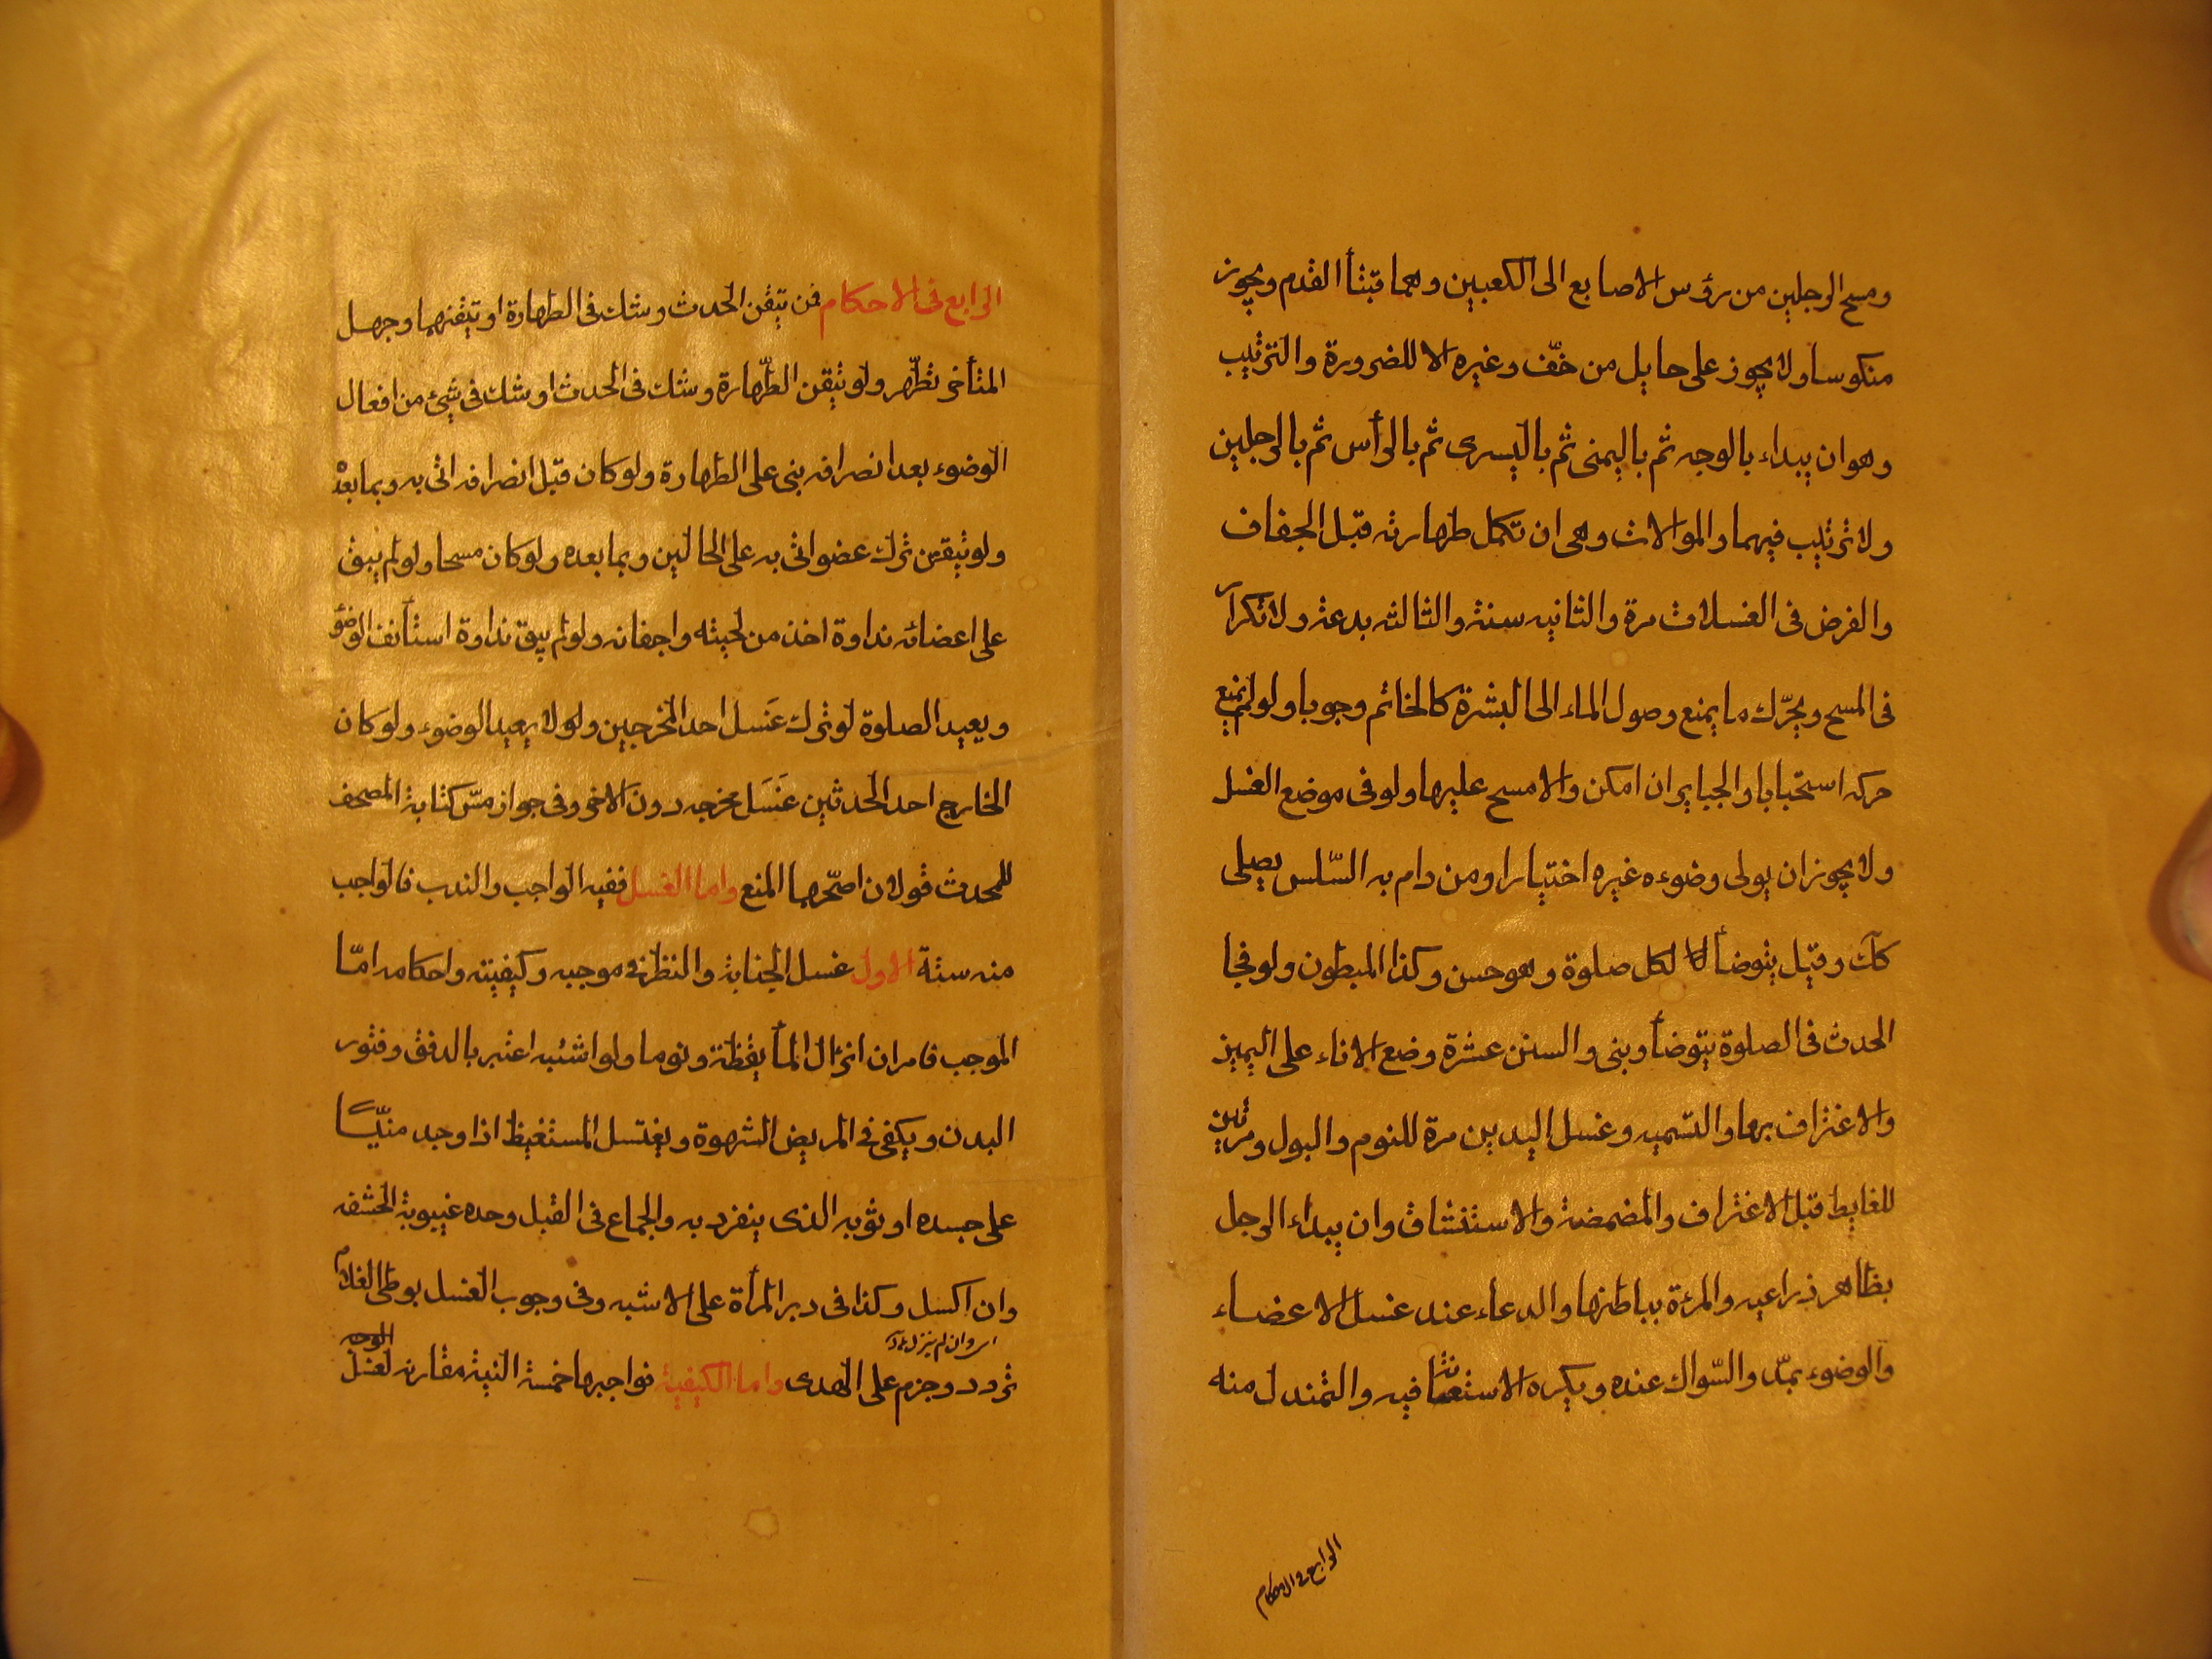 ومسح الرجلين من رؤس الاصابع الى الكعبين وهما قبتا القدم ويجوز
منكوسا ولا يجوز على حايل من خفّ وغيره الا للضرورة والترتيب
وهو ان يبداء بالوجه ثم باليمنى ثم باليسرى ثم بالرأس ثم بالرجلين
ولا ترتيب فيهما والموالات وهى ان تكمل طهارته قبل الجفاف
والفرض فى الغسلات مرة والثانيه سنة والثالثه بدعة ولا تكرار
فى المسح ويحرّك ما يمنع وصول الماء الى البشرة كالخاتم وجوبا ولو لم يمنع
حركه استحبابا والجباير ان امكن والا مسح عليها ولو فى موضع الغسل
ولا يجوز ان يولى وضوءه غيره اختيارا ومن دام به السّلس يصلى
كك وقيل يتوضأ لكل صلوة وهو حسن وكذا المبطون ولو فجا
الحدث فى الصلوة يتوضأ وبنى والسنن عشرة وضع الاناء على اليمين
والاغتراف بها والتسميه وغسل اليدين مرة للنوم والبول ومرتين
للغايط قبل الاغتراف والمضمضة والاستنشاق وان يبداء الرجل
بظاهر ذراعيه والمرءة بباطنها والدعاء عند غسل الاعضاء
والوضوء بمدّ والسّواك عنده ويكره الاستعانة فيه والتمندل منه
الرابع فى الاحكام
الرابع فى الاحكام فمن تيقن الحدث وشك فى الطهارة او تيقنهما وجهل
المتأخر تطّهر ولو تيقن الطّهارة وشك فى الحدث او شك فى شئ من افعال
الوضوء بعد انصرافه بنى على الطهارة ولو كان قبل انصرافه اتى به وبما بعده
ولو تيقن ترك عضو اتى به على الحالين وبما بعده ولو كان مسحا ولو لم يبق
على اعضائه نداوة اخذ من لحيته واجفانه ولو لم يبق نداوة استأنف الوضؤ
ويعيد الصلوة لو ترك غَسل احد المخرجين ولو لا يعيد الوضوء ولو كان
الخارج احد الحدثين غَسَل مخرجه دون الاخر وفى جواز مسّ كتابة المصحف
للمحدث قولان اصحّهما المنع واما الغسل ففيه الواجب والندب فالواجب
منه ستة الاول غسل الجنابة والنظر فى موجبه وكيفيته واحكامه امّا
الموجب فامران انزال الماء يقظة ونوما ولو اشتبه اعتبر بالدفق وفتور
البدن ويكفى فى المريض الشهوة ويغتسل المستغيظ اذا وجد منيّـًا
على جسده او ثوبه الذى ينفرد به والجماع فى القبل وحده غيبوبة الحشفه
وان اكسل وكذا فى دبر المرأة على الاشبه وفى وجوب الغسل بوطى الغلام
اى وان لم ينزل ماء
تردد وجزم على الهدى واما الكيفية فواجبها خمسة النية مقارنه لغسل الوجه